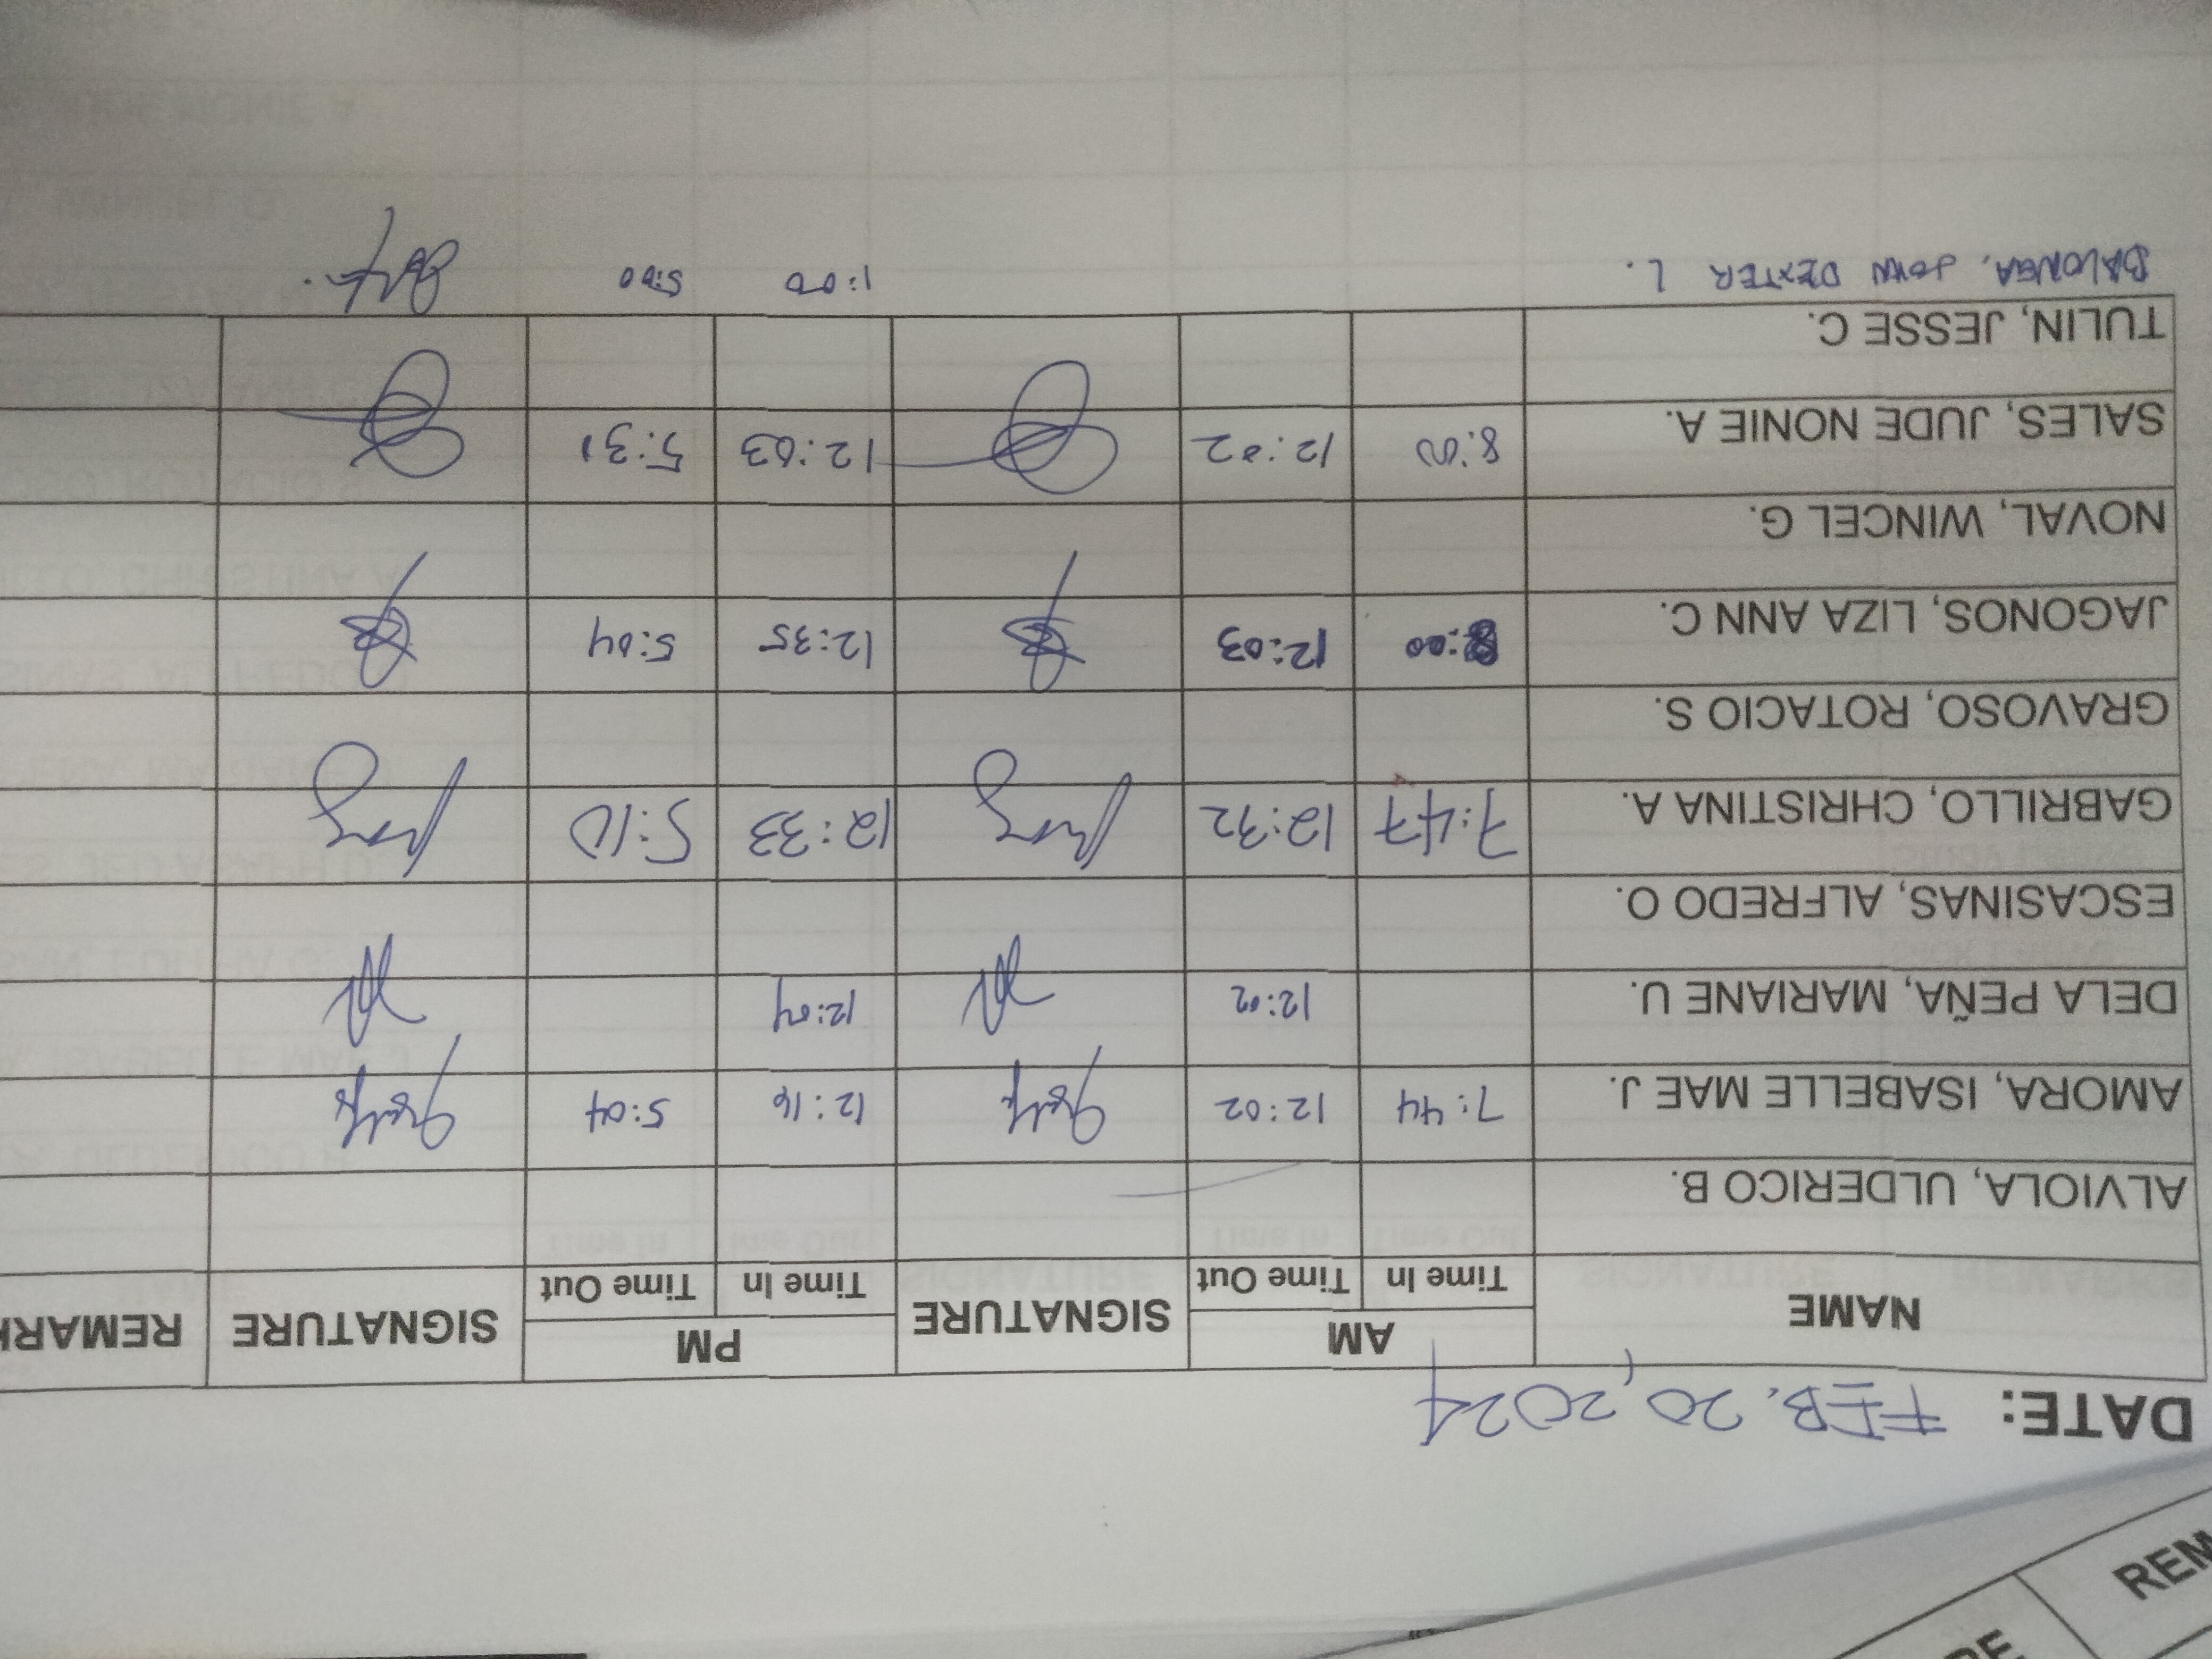 DATE: FEB. 20, 2024
NAME AM SIGNATURE PM SIGNATURE REMARK
Time In Time Out Time In Time Out
ALVIOLA, ULDERICO B.
AMORA, ISABELLE MAE J. 7:44 12:02 12:16 5:04
DELA PEÑA, MARIANE U. 12:02 12:04
ESCASINAS, ALFREDO O.
GABRILLO, CHRISTINA A. 7:47 12:32 12:33 5:10
GRAVOSO, ROTACIO S.
JAGONOS, LIZA ANN C. 8:00 12:03 12:35 5:04
NOVAL, WINCEL G.
SALES, JUDE NONIE A. 8:00 12:02 12:03 5:31
TULIN, JESSE C.
JOHN DEXTER L. 1:00 5:00
REM